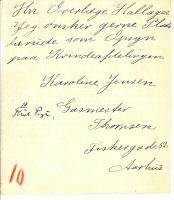 Hr. Overlæge Hallager
Jeg ønsker gerne Plads
herude som Opsyn
paa Kvindeafdelingen
Karoline Jensen
Gasmester
Thomsen
Fiskergade 52
Aarhus
10